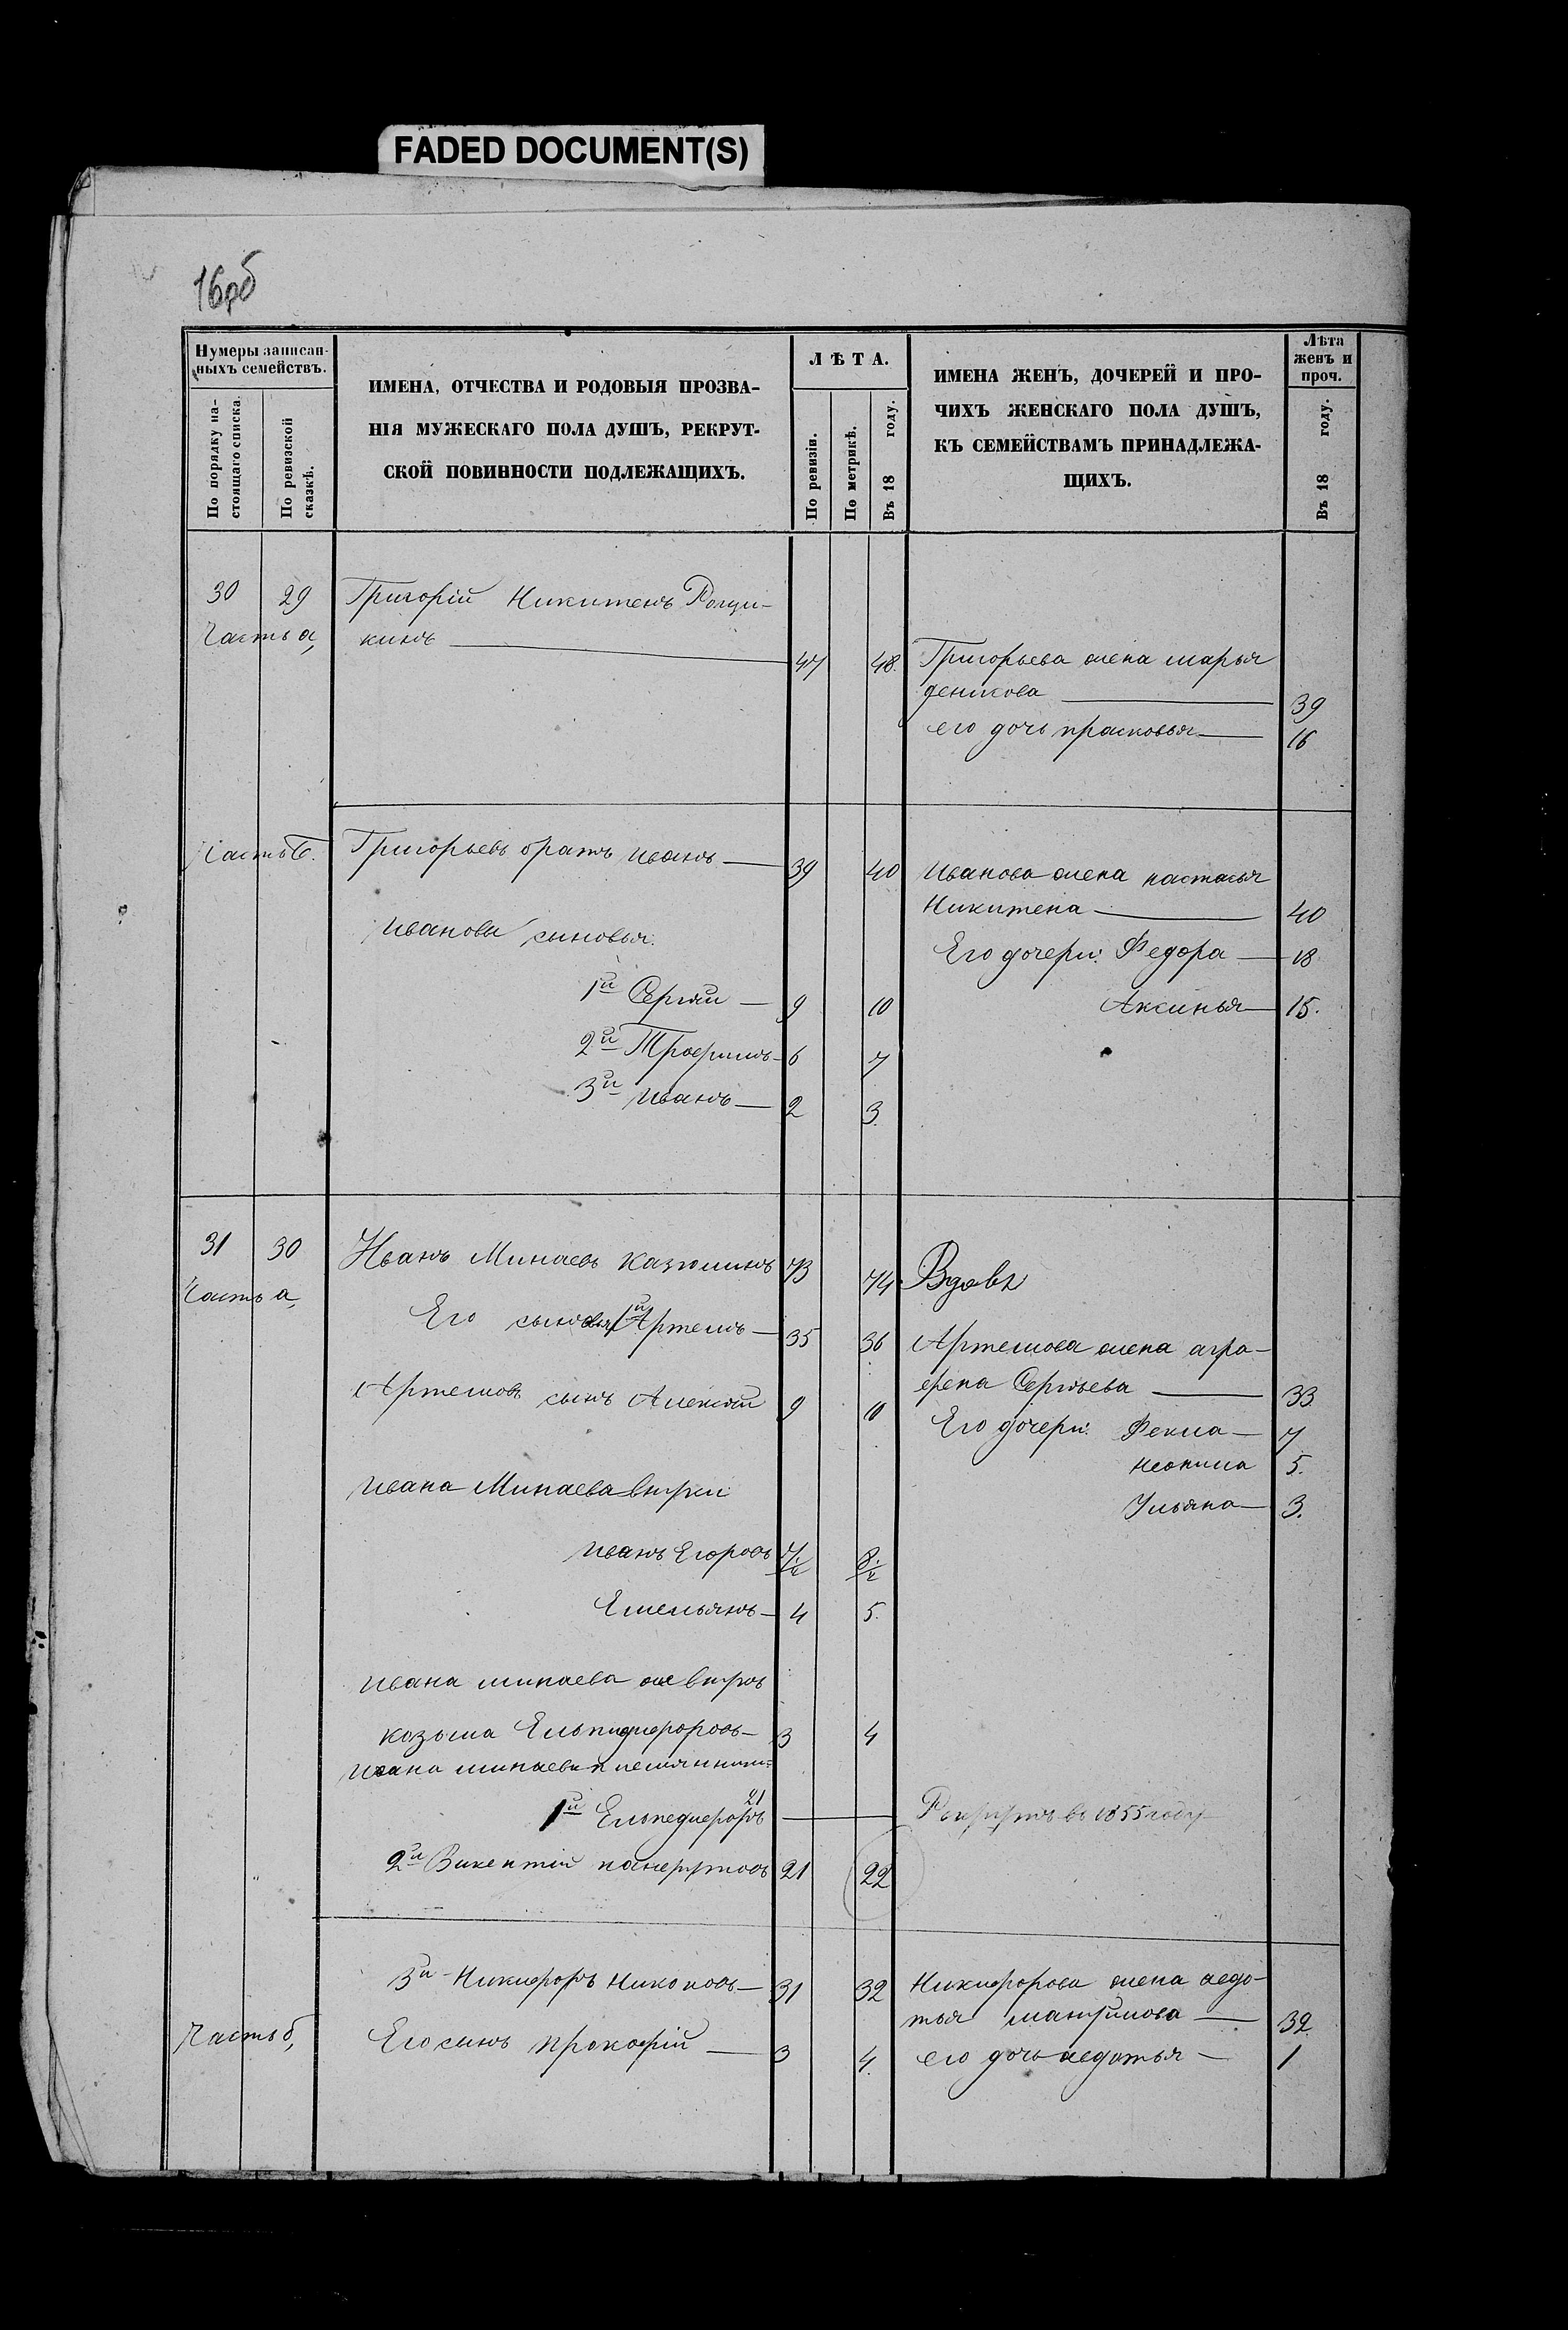 FADED DOCUMENT(S)
16об
Нумеры записан-
ныхъ семействъ.
По порядку на-
стоящаго списка.
По ревизской
сказкѣ.
ИМЕНА, ОТЧЕСТВА И РОДОВЫЯ ПРОЗВА-
НІЯ МУЖЕСКАГО ПОЛА ДУШЪ, РЕКРУТ-
СКОЙ ПОВИННОСТИ ПОДЛЕЖАЩИХЪ.
ЛѢТА.
По ревизіи.
По метрикѣ.
Въ 18 году.
ИМЕНА ЖЕНЪ, ДОЧЕРЕЙ И ПРО-
ЧИХЪ ЖЕНСКАГО ПОЛА ДУШЪ,
КЪ СЕМЕЙСТВАМЪ ПРИНАДЛЕЖА-
ЩИХЪ.
Лѣта
женъ и
проч.
Въ 18 году.
30 29 Григорій Никитенъ Рощи-
Часть а, кинъ 47 48. Григорьева жена марья
39
его дочь прасковья 16
Часть б. Григорьевъ братъ иванъ 39 40 Иванова жена настасья
Никитена 40
Ивановы сыновья:
Его дочери: Федора 18
1й Сергѣй 9 10 Аксинья 15.
2й Трофимъ 6 7
3й иванъ 2 3.
31 30 Иванъ Минаевъ Казюминъ 73 74 Вдовъ
Часть а,
Его сыновья 1й Артемъ 35 36 Артемова жена агра-
фена Сергѣева 33.
Артемовъ сынъ Алексѣй 9 10
Его дочери: Фекла 7
неонила 5.
Ивана Минаева внуки
Ульяна 3.
иванъ Егоровъ 7 1/2 8 1/2
Емельянъ 4 5.
Ивана минаева же внукъ
козьма Ельпидифоровъ 3 4
Ивана минаева племянники:
1й Ельпедифоръ 21 Рекрутъ въ 1855 году
2й Викентій 21 22
3й Никифоръ Никоновъ 31 32 Никифорова жена авдо-
тья 32.
Часть б, Его сынъ прокофій 3 4. его дочь авдотья 1